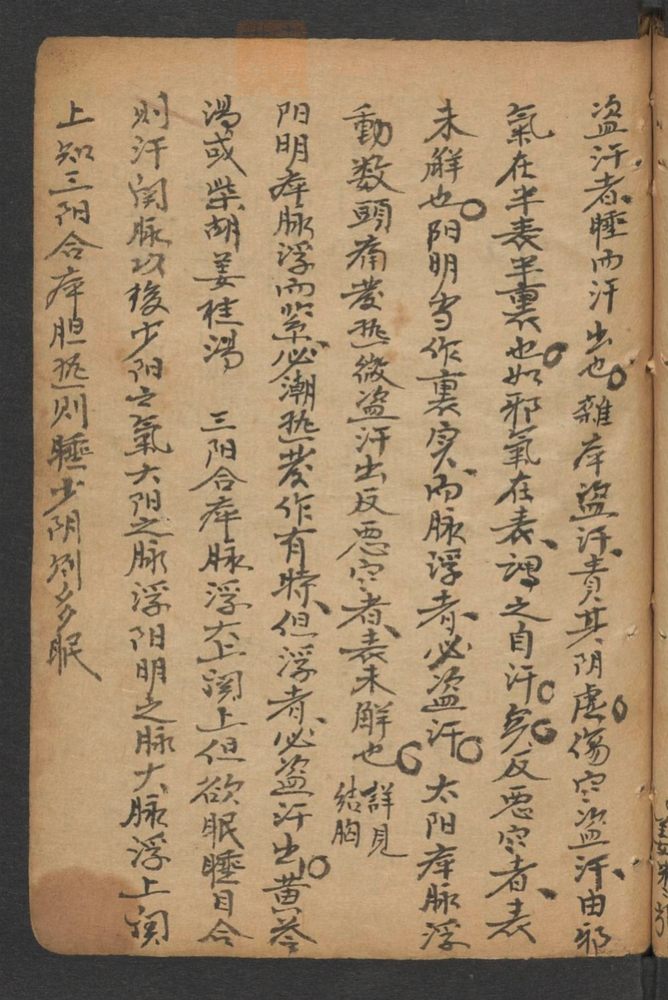 盗汗者、睡而汗出也。雜病盗汗、責其阴虚。傷寒盗汗、由邪
氣在半表半裏也。如邪氣在表、謂之自汗。反悪寒者、表
未解也。阳明当作裏实、而脉浮者、必盗汗。太阳病脉浮
動数頭痛發热微盗汗出反悪寒者、表未解也。詳見結胸
阳明病脉浮而紧必潮热發作有時、但浮者、必盗汗出。黄芩
湯或柴胡姜桂湯　三阳合病脉浮大上関上但欲眠睡目合
則汗関脉以候少阳之氣太阳之脉浮阳明之脉大脉浮上関
上知三阳合病胆热則睡少阴則多眠